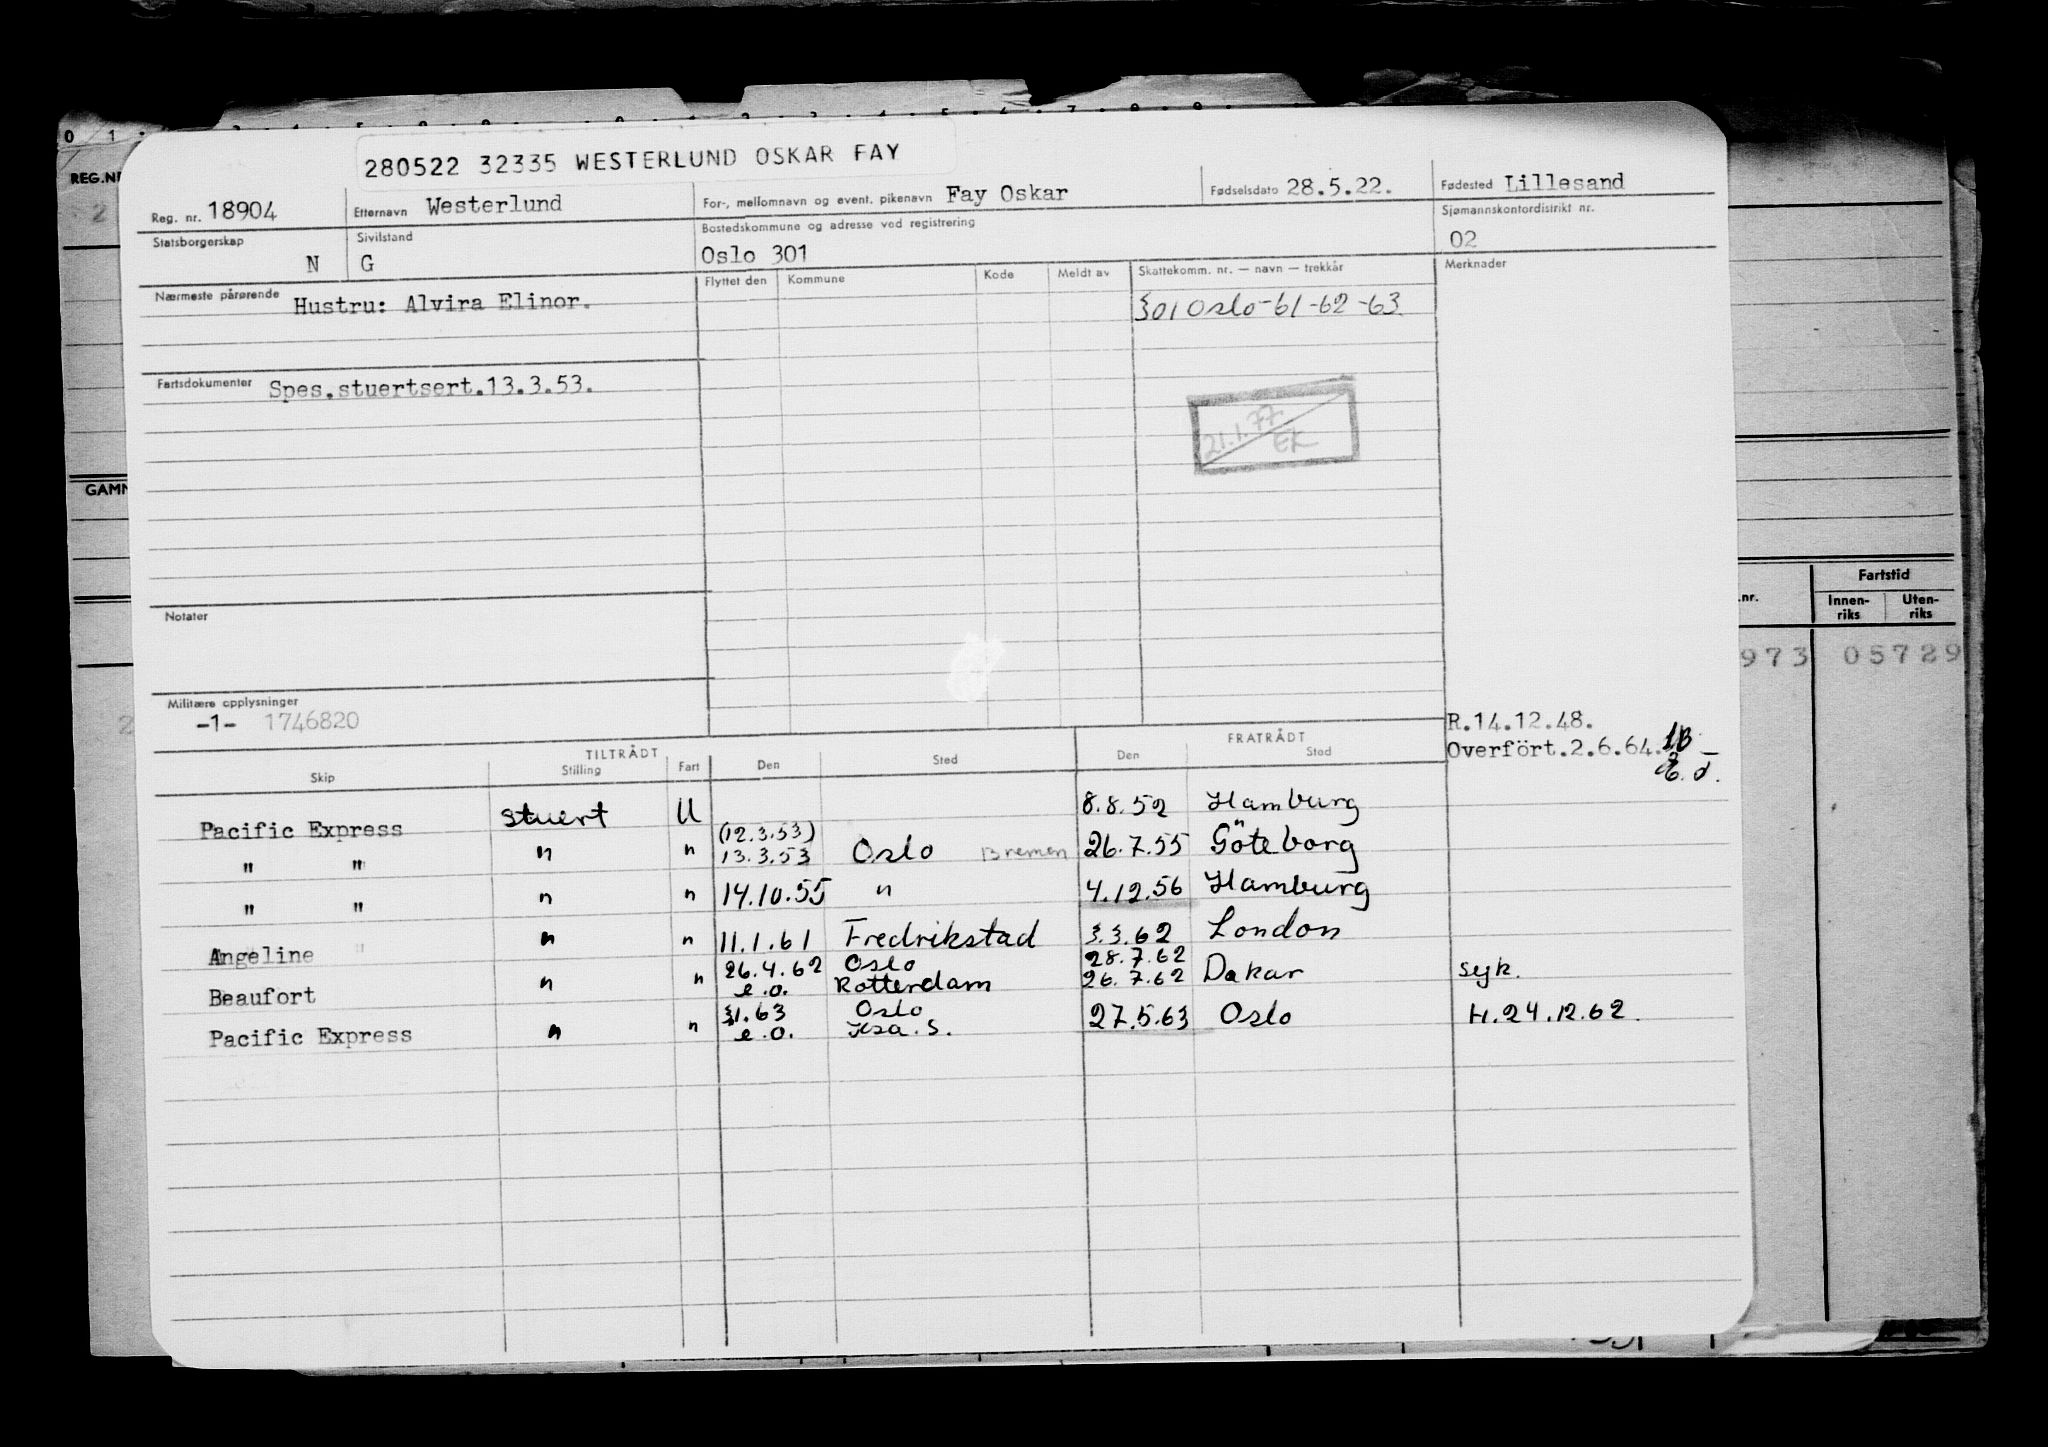 280522 32335 WESTERLUND OSKAR FAY
REG.NR
Reg. nr. 18904 Etternavn Westerlund For-, mellomnavn og event. pikenavn Fay Oskar Fødselsdato 28.5.22. Fødested Lillesand
Statsborgerskap N Sivilstand G Bostedskommune og adresse ved registrering Oslo 301 Sjømannskontordistrikt nr. 02
Nærmeste pårørende Hustru: Alvira Elinor. Flyttet den Kommune Kode Meldt av Skattekomm. nr. — navn — trekkår Merknader
301 Oslo-61-62-63
Fartsdokumenter Spes.stuertsert.13.3.53.
21.1.77
EK
GAMM
Notater
Fartstid
.nr. Innen-riks Uten-riks
973 05729
Militære opplysninger
-1- 1746820
R.14.12.48.
Overført.2.6.64.
TILTRÅDT FRATRÅDT
Skip Stilling Fart Den Sted Den Sted
Pacific Express stuert U 8.8.52 Hamburg
(12.3.53)
" " " " 13.3.53 Oslo Bremen 26.7.55 Göteborg
" " " " 14.10.55 " 4.12.56 Hamburg
Angeline " " 11.1.61 Fredrikstad 3.3.62 London
26.4.62 Oslo 28.7.62
Beaufort " " e.o. Rotterdam 26.7.62 Dakar syk.
31.63 Oslo
Pacific Express " " e.o. Kra.S. 27.5.63 Oslo H.24.12.62.